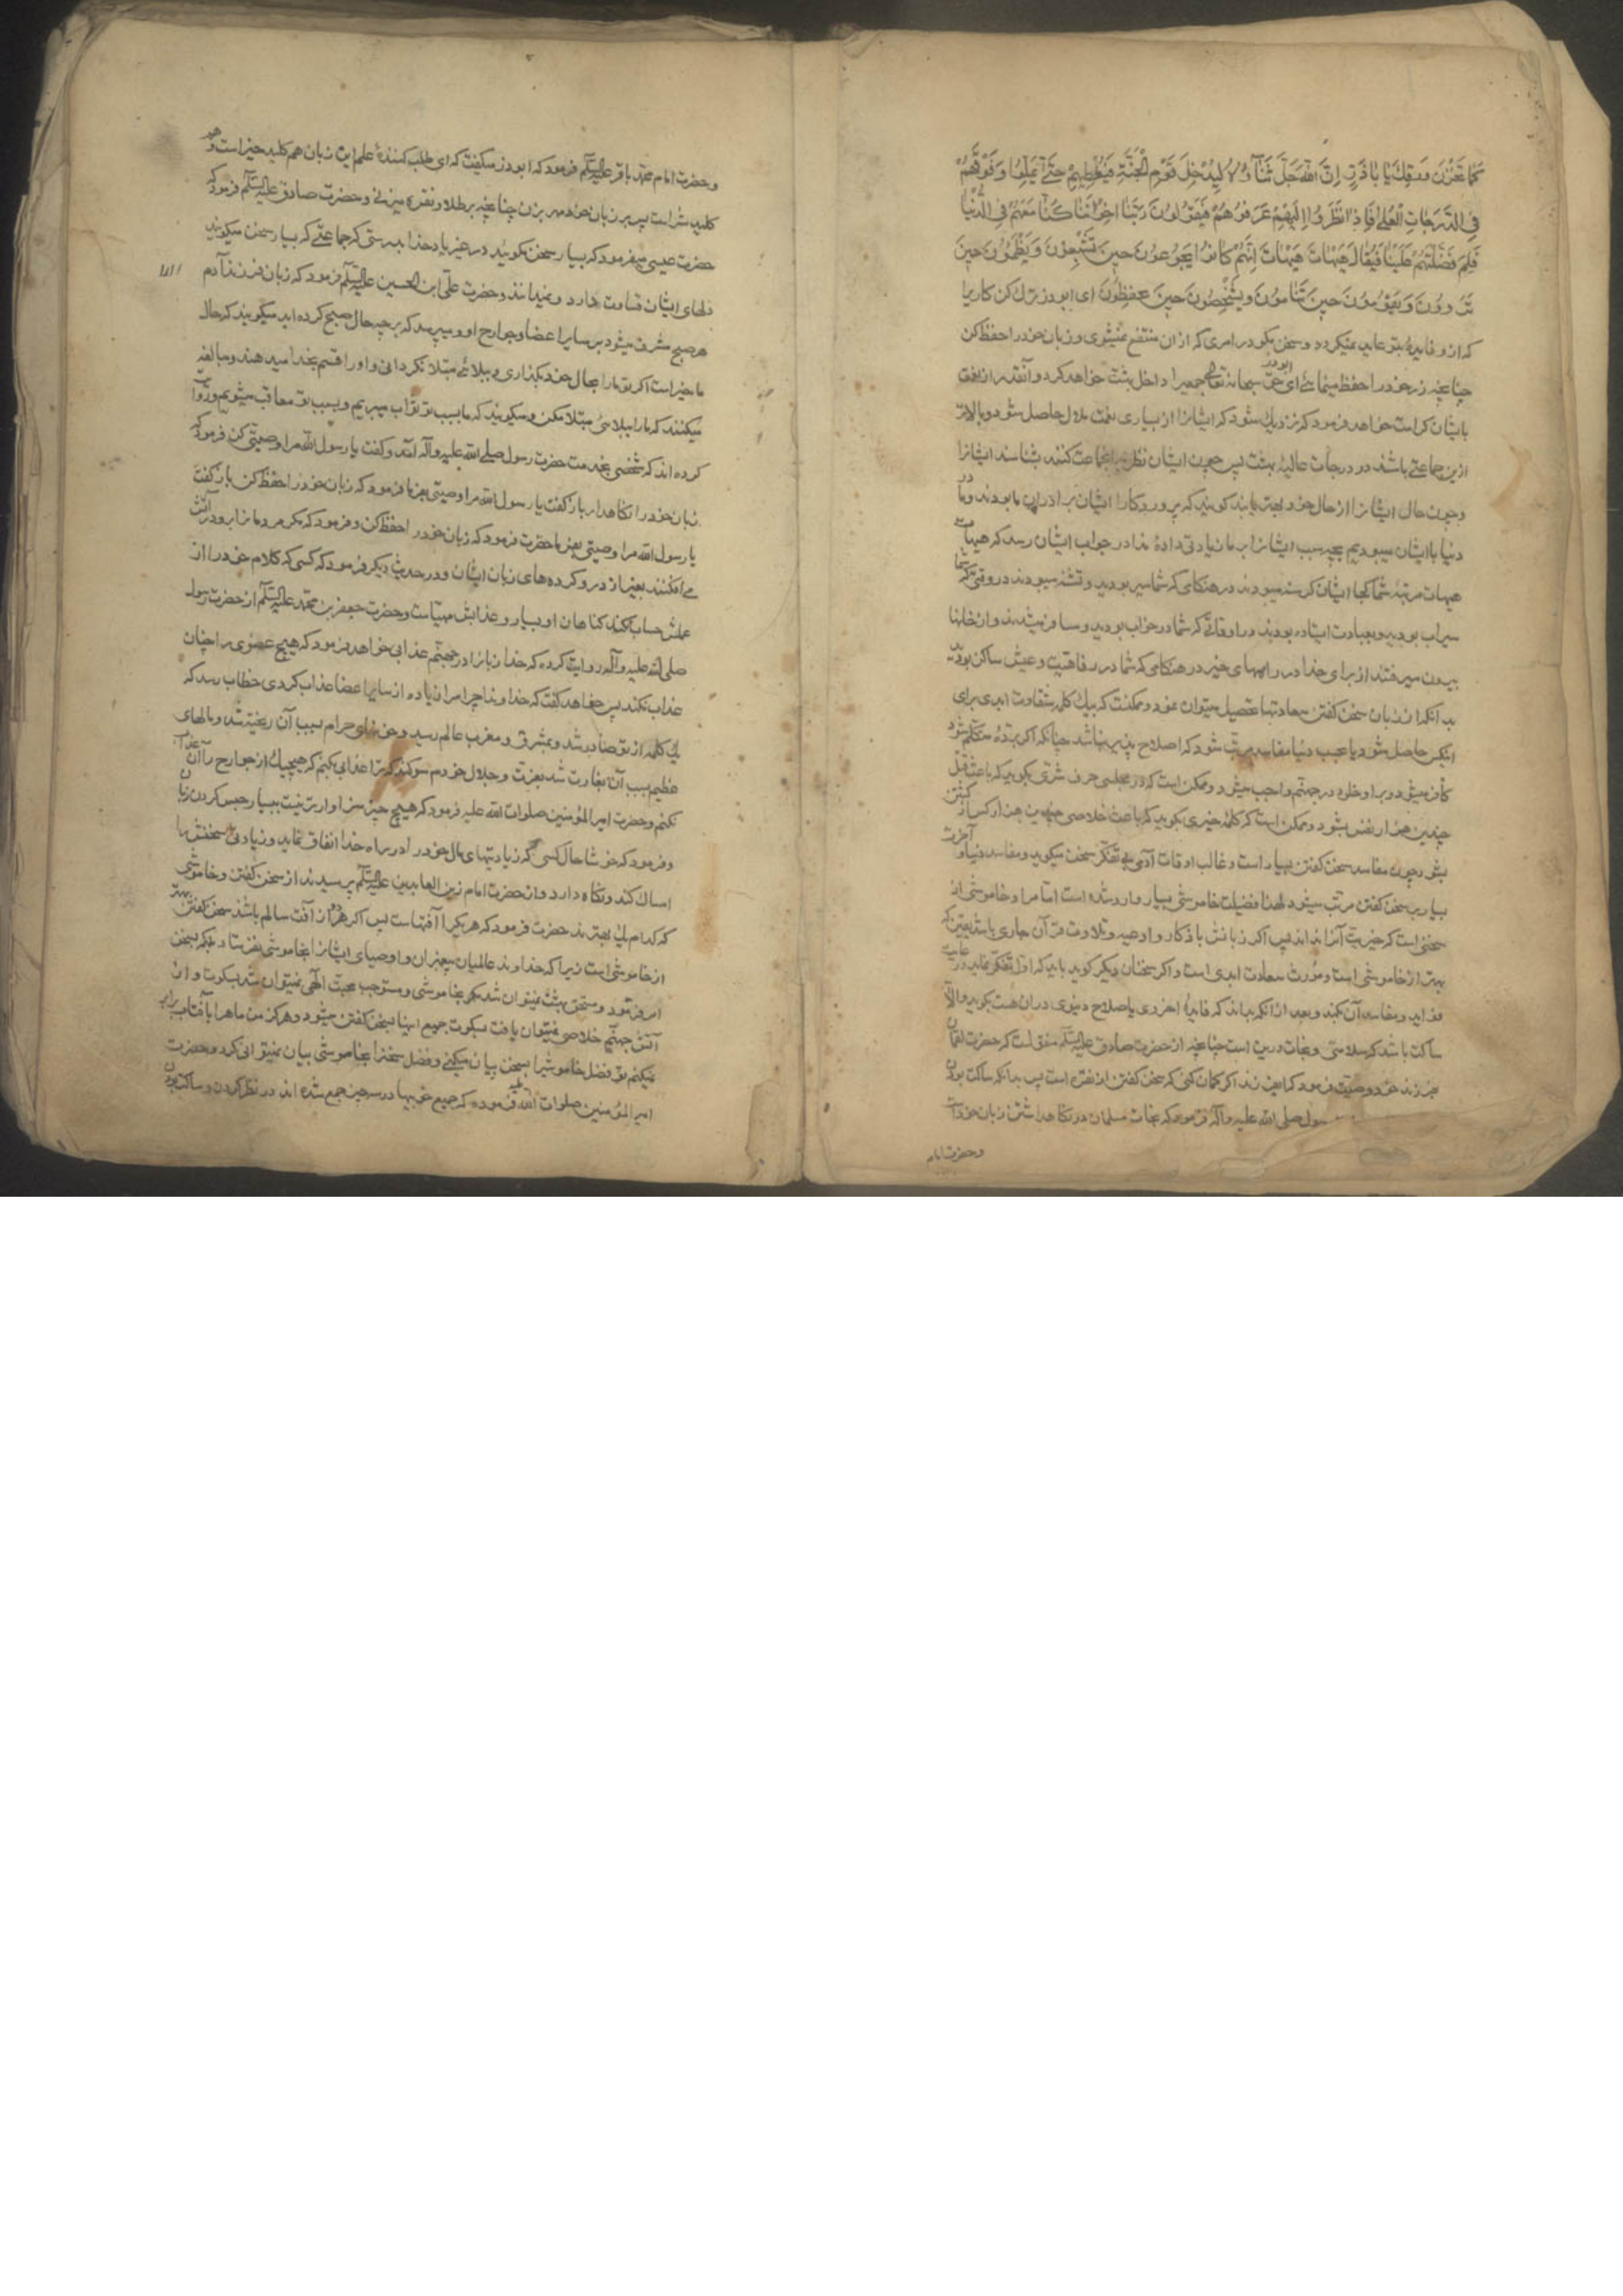 كَمٰا تَخْزُنُ وَرِقَكَ يٰا بٰاذَرٍّ اِنَّ اللّٰهَ جَلَّ ثَنٰآؤُهُ لَيُدْخِلُ قَوْمَ الْجَنَّةِ فَيُعْطِيهِمْ حَتّٰى يَمَلُّوا وَ فَوْقَهُمْ
فِي الدَّرَجٰاتِ الْعُلىٰ فَاِذٰا نَظَرُوا اِلَيْهِمْ عَرَفُوهُمْ فَيَقُولُونَ رَبَّنٰا اِخْوٰانُنٰا كُنّٰا مَعَهُمْ فِي الدُّنْيٰا
فَلِمَ فَضَّلْتَهُمْ عَلَيْنٰا فَيُقٰالُ هَيْهٰاتَ هَيْهٰاتَ اِنَّهُمْ كٰانُوا يَجُوعُونَ حِينَ تَشْبَعُونَ وَ يَظْمَؤُنَ حِينَ
تَرْوُونَ وَ يَقُومُونَ حِينَ تَنٰامُونَ وَ يَشْخَصُونَ حِينَ تَحْفِظُونَ ای ابوذر ترك كن كاریرا
كه از و فایدهٔ بتو عاید نمیكردد و سخن مكو در امری كه از ان منتفع نمیشوی و زبان خود را حفظ كن
چنانچه زر خود را حفظ مینمائی ای ابوذر حق سبحانه تعالی جمعیرا داخل بهشت خواهد كرد و آنقدر از نعمت
بایشان كرامت خواهد فرمود كه نزدیك شود كه ایشانرا از بسیاری نعمت ملال حاصل شود و بالاتر
ازین جماعتی باشند در درجات عالیهٔ بهشت پس چون ایشان نظر بانجماعت كنند بشناسند ایشانرا
و چون حال ایشانرا از حال خود بهتر یابند كویند كه پروردكارا ایشان برادران ما بودند و ما در
دنیا با ایشان میبودیم بچه سبب ایشانرا بر ما زیادتی دادهٔ ندا در جواب ایشان رسد كه هیهات
هیهات مرتبهٔ شما كجا ایشان كرسنه میبودند در هنكامی كه شما سیر بودید و تشنه میبودند در وقتی كه شما
سیراب بودید و بعبادت ایستاده بودند در اوقاتی كه شما در خواب بودید و مسافر میشدند و از خانها
بیرون میرفتند از برای خدا در راههای خیر در هنكامی كه شما در رفاهیت و عیش ساكن بودید
بدانكه از زبان سخن كفتن سعادتها تحصیل میتوان نمود و ممكنست كه بیك كلمه شقاوت ابدی برای
اینكس حاصل شود یا عجب دنیا مفاسد مرتب شود كه اصلاح پذیر نباشد چنانكه اكر بنده متكلم شود
كافر میشود و برا و خلود در جهنم واجب میشود و ممكن است كه در مجلسی حرف شری بكوید كه باعث قتل
چندین هزار نفس بشود و ممكن است كه كلمهٔ خیری بكوید كه باعث خلاصی چندین هزار كس از كشتن
بشود چون مفاسد سخن كفتن بسیار است و غالب اوقات آدمی بی تفكر سخن میكوید و مفاسد دنیا و آخرت
بسیار بر سخن كفتن مرتب میشود لهذا فضیلت خاموشی بسیار وارد شده است اما مراد خاموشی از
سخنی است كه خیریت آنرا نداند پس اكر زبانش باذكار و ادعیه و تلاوت قرآن جاری باشد یقین كه
بهتر از خاموشی است و مورث سعادت ابدی است و اكر سخنان دیكر كوید باید كه اول تفكر نماید در عاقبت
فواید و مفاسد آن بكند و بعد از انكه بداند كه فایدهٔ اخروی یا صلاح دنیوی در ان هست بكوید و الا
ساكت باشد كه سلامتی و نجات درین است چنانچه از حضرت صادق علیه السلام منقولست كه حضرت لقمان
فرزند خود وصیت فرمود كه ای فرزند اكر كمان كنی كه سخن كفتن از نقره است پس بدانكه ساكت بودن
رسول صلی الله علیه و آله فرمود كه نجات مسلمان در نكاهداشتن زبان خود است
و حضرت امام
و حضرت امام محمد باقر علیه السلام فرمود كه ابوذر میكفت كه ای طلب كنندهٔ علم این زبان هم كلید خیر است و هم
كلید شر است پس بر زبان خود مهر بزن چنانچه بر طلا و نقره میزنی و حضرت صادق علیه السلام فرمود كه
حضرت عیسی میفرمود كه بسیار سخن مكوئید در غیر یاد خدا بدرستی كه جماعتی كه بسیار سخن میكویند
دلهای ایشان قساوت دارد و نمیدانند و حضرت علی ابن الحسین علیه السلام فرمود كه زبان فرزند آدم
هر صبح مشرف میشود بر سایر اعضا و جوارح او و میپرسد كه بر چه حال صبح كرده اید میكویند كه حال
ما خیر است اكر تو ما را بحال خود بكذاری و ببلائی مبتلا نكردانی و او را قسم بخدا میدهند و مبالغه
میكنند كه ما را ببلائی مبتلا مكن و میكویند كه ما بسبب تو ثواب میبریم و بسبب تو معاقب میشویم و روایت
كرده اند كه شخصی بخدمت حضرت رسول صلی الله علیه و آله آمد و كفت یا رسول الله مرا وصیتی كن فرمود كه
زبان خود را نكاهدار باز كفت یا رسول الله مرا وصیتی بفرما فرمود كه زبان خود را حفظ كن باز كفت
یا رسول الله مرا وصیتی بفرما حضرت فرمود كه زبان خود را حفظ كن و فرمود كه مكر مردمانرا برو در آتش
می افكنند بغیر از درو كرده های زبان ایشان و در حدیث دیكر فرمود كه كسی كه كلام خود را از
عملش حساب نكند كناهان او بسیار و عذابش مهیاست و حضرت جعفر بن محمد علیه السلام از حضرت رسول
صلی الله علیه و آله روایت كرده كه خدا زبانرا در جهنم عذابی خواهد فرمود كه هیچ عضوی را چنان
عذاب نكند پس خواهد كفت كه خداوندا چرا مرا زیاده از سایر اعضا عذاب كردی خطاب رسد كه
یك كلمه از تو صادر شد و بمشرق و مغرب عالم رسید و خونهای حرام بسبب آن ریخته شد و مالهای
عظیم بسبب آن بغارت شد بعزت و جلال خودم سوكند كه ترا عذابی بكنم كه هیچیك از جوارح را آن عذاب
نكنم و حضرت امیر المؤمنین صلوات الله علیه فرمود كه هیچ چیز سزاوارتر نیست ببسیار حبس كردن از زبان
و فرمود كه خوشا حال كسی كه زیادتیهای مال خود را در راه خدا انفاق نماید و زیادتی سخنش را
امساك كند و نكاه دارد و از حضرت امام زین العابدین علیه السلام پرسیدند از سخن كفتن و خاموشی
كه كدام یك بهترند حضرت فرمود كه هر یكرا آفتهاست پس اكر هر دو از آفت سالم باشند سخن كفتن بهتر
از خاموشی است زیرا كه خداوند عالمیان پیغمبران و اوصیای ایشانرا بخاموشی نفرستاد بلكه بسخن
امر فرمود و مستحق بهشت نمیتوان شد بخاموشی و مستوجب محبت الهی نمیتوان شد بسكوت و از
آتش جهنم خلاصی نمیتوان یافت بسكوت جمیع اینها بسخن كفتن میشود و هركز من ماه را با آفتاب برابر
نمیكنم تو فضل خاموشیرا بسخن بیان میكنی و فضل سخنرا بخاموشی بیان نمیتوانی كرد و حضرت
امیر المؤمنین صلوات الله علیه فرموده كه جمیع خوبیها در سه چیز جمع شده اند در نظر كردن و ساكت بودن